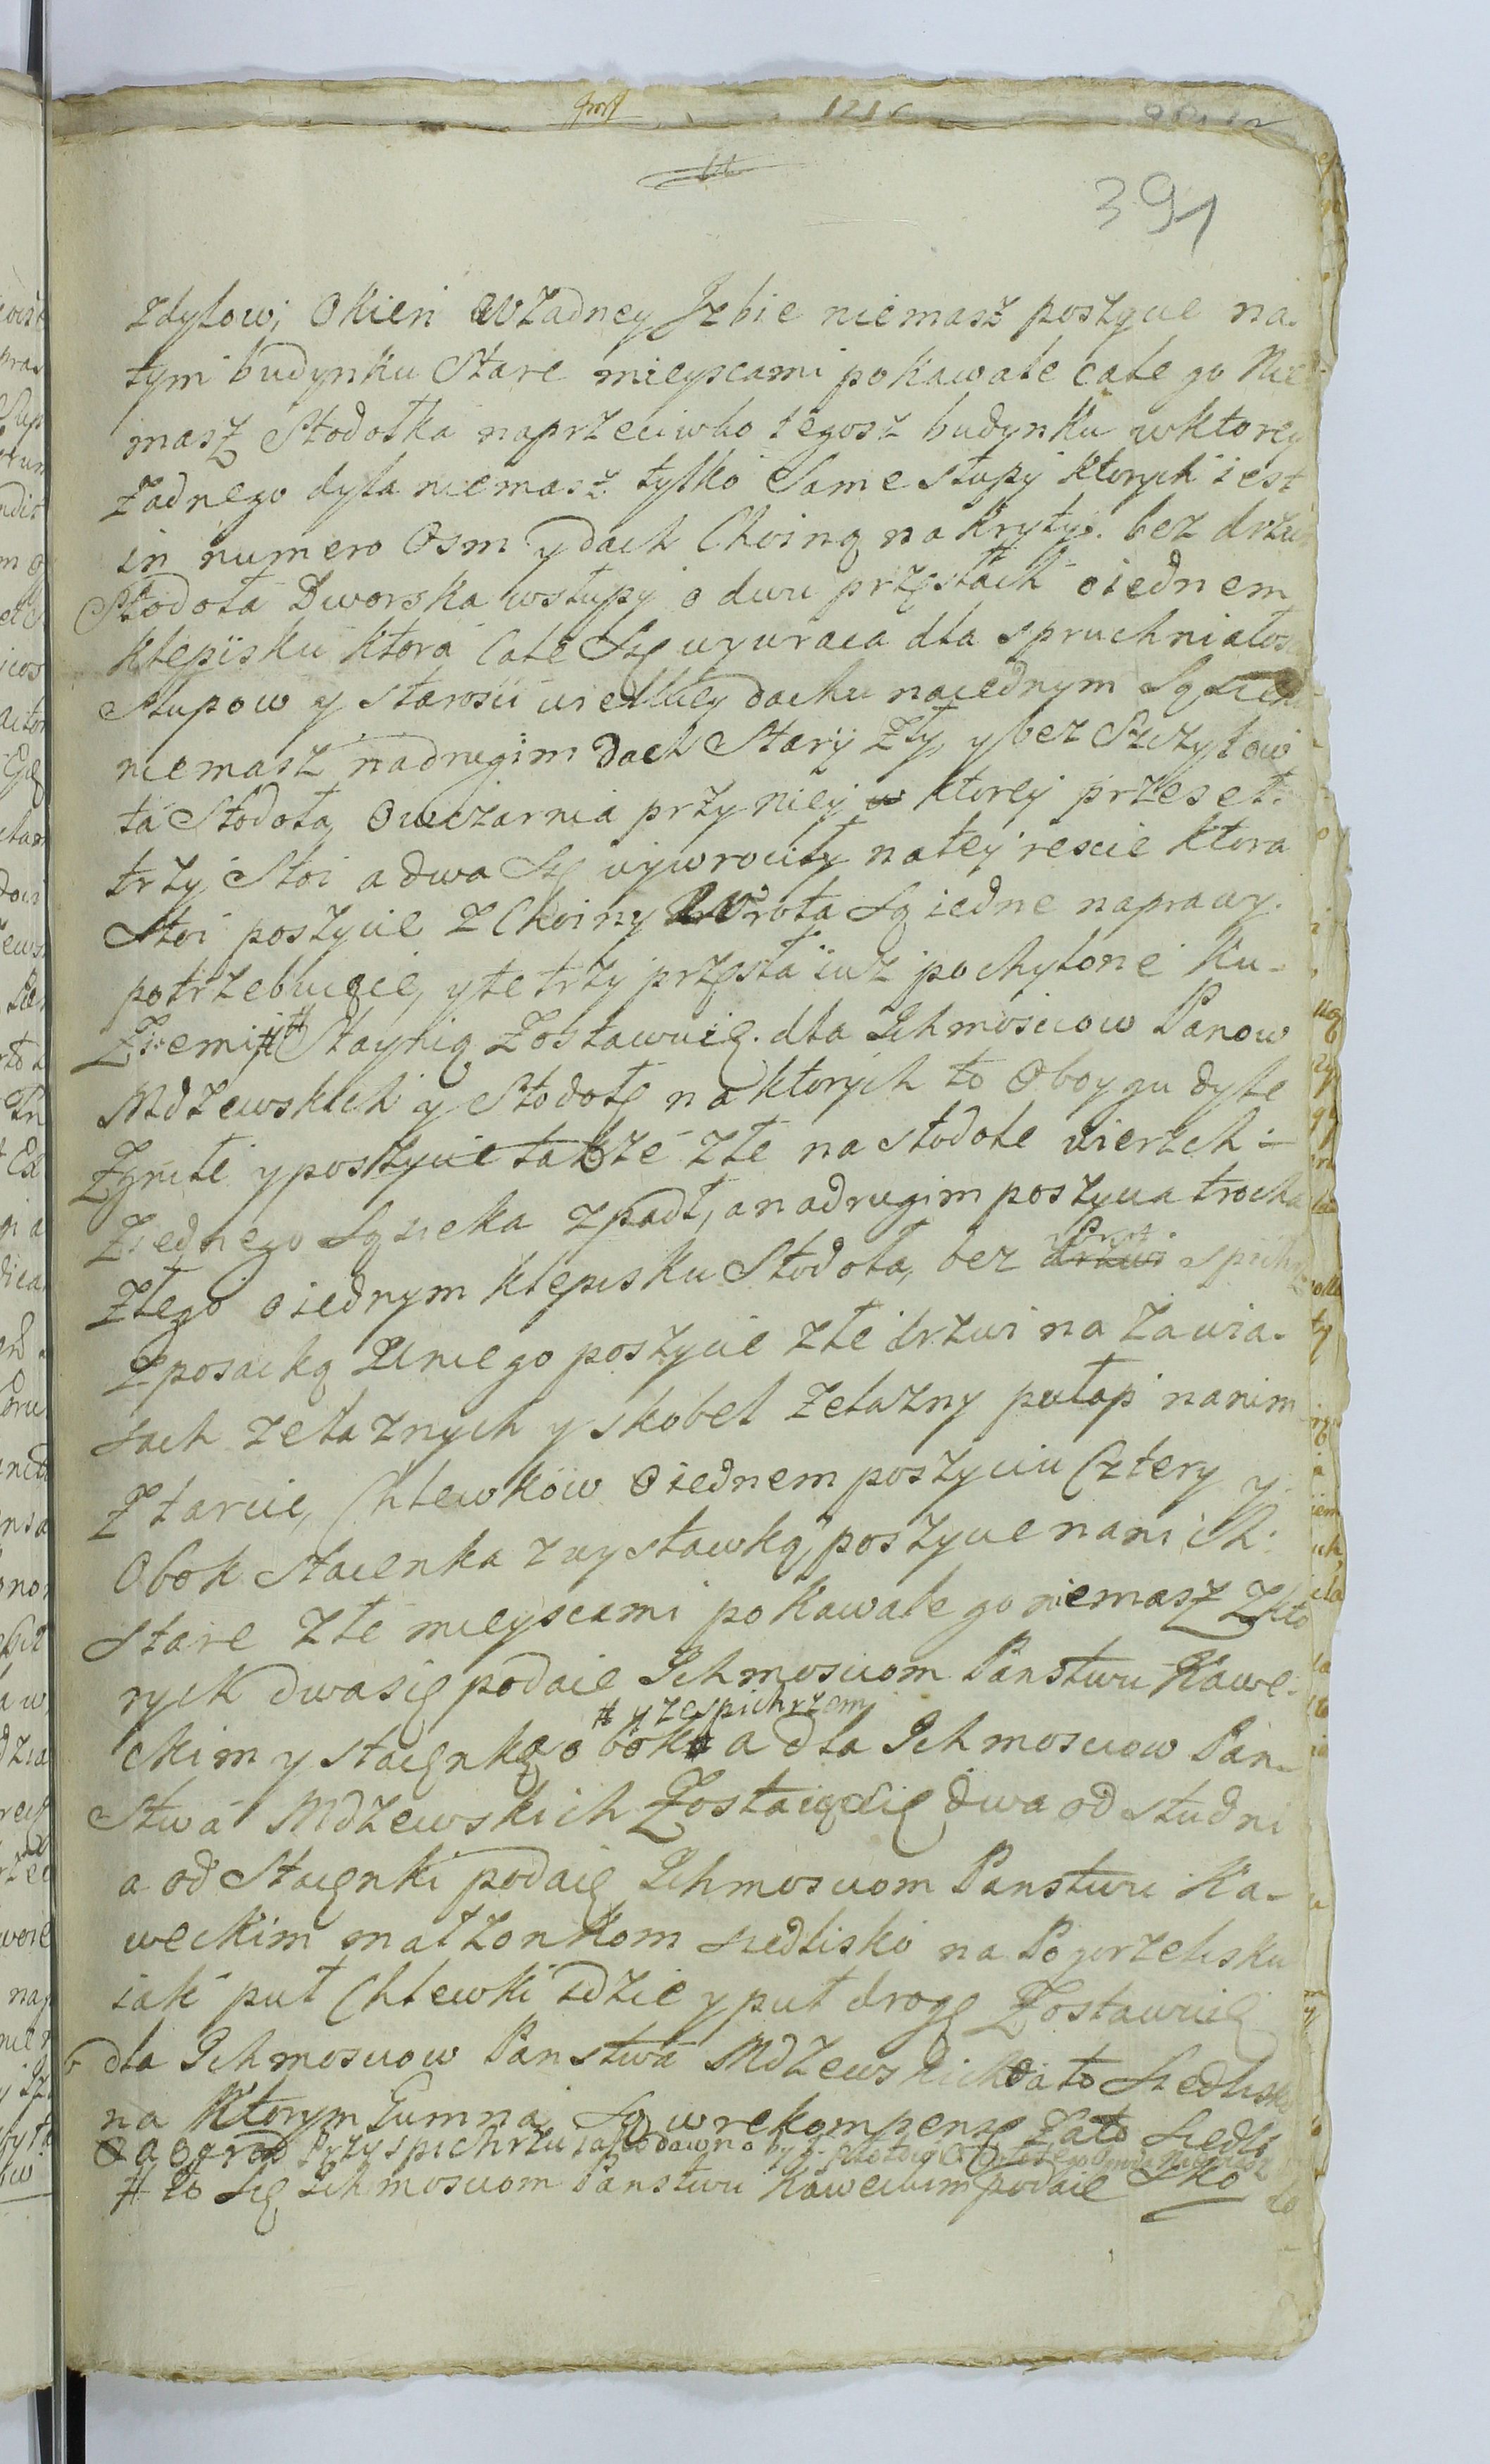 391
zdylow, Okien w Zadney Jzbie niemasz poszycie na.
tym budynku Stare mieyscami po kawale cale go Nie
masz Stodołka naprzeciwko tegosz budynku wktorey
Zadnego dyla niemasz tylko Same słupy ktorych iest
in numero Osm y dach Choiną nakryty. bez drzwi
Stodoła Dworska wsłupy o dwu przęsłach o iednem
klepisku ktora Cale Się wywraca dla spruchniałosc
Słupow y starosci wielkiey dachu na iednym Sąsieku
niemasz nadrugim dach Stary Zły, y bez Szczytow
ta Stodoła, Owczarnia przy niey w ktorey przeseł.
trzy Stoi a dwa Się wywrociły natey rescie ktora
Stoi poszycie z Choiny Wrota Są iedne naprawy.
potrzebuiące, y te trzy przęsła iusz pochylone Ku-
Ziemi # Staynią Zostawuię. dla Ichmosciow Panow
Mdzewskich y Stodołę na ktorych to Oboygu dyle
Zgniłe y poszycie także złe na stodole wierzch-
Ziednego Sąsieka zpadł, a nadrugim poszycia trocha
Złego o iednym klepisku Stodoła, bez drzwi
Zposacką Uniego poszycie złe drzwi na Zawia-
sach zelaznych y skobel zelazny pułap nanim
Z tarcic, Chlewkow o iednem poszyciu Cztery y
Obok stacenka zwystawką, poszycie na nich:
stare złe mieyscami po kawale go niemasz Zkto
rych dwa się podaie Ichmosciom Panstwu Kawe-
# y ze spichrzem
ckim y staięnką obok # a dla Ichmosciow Pan-
Stwa Mdzewskich Zostaią się dwa od studni
a od Staięnki podaię Ichmosciom Panstwu Ka-
weckim małzonkom siedlisko na Pogorzelisku
iak puł Chlewki idzie y puł drogę Zostawuię
dla Ichmosciow Panstwa Mdzewskich a to Siedlisko
na Ktorym Gumna Są w rekompensę Za to Siedli
sko
a ogrod Przy spichrzu iako dawno
# to Się Ichmosciom Panstwu Kaweckim podaie